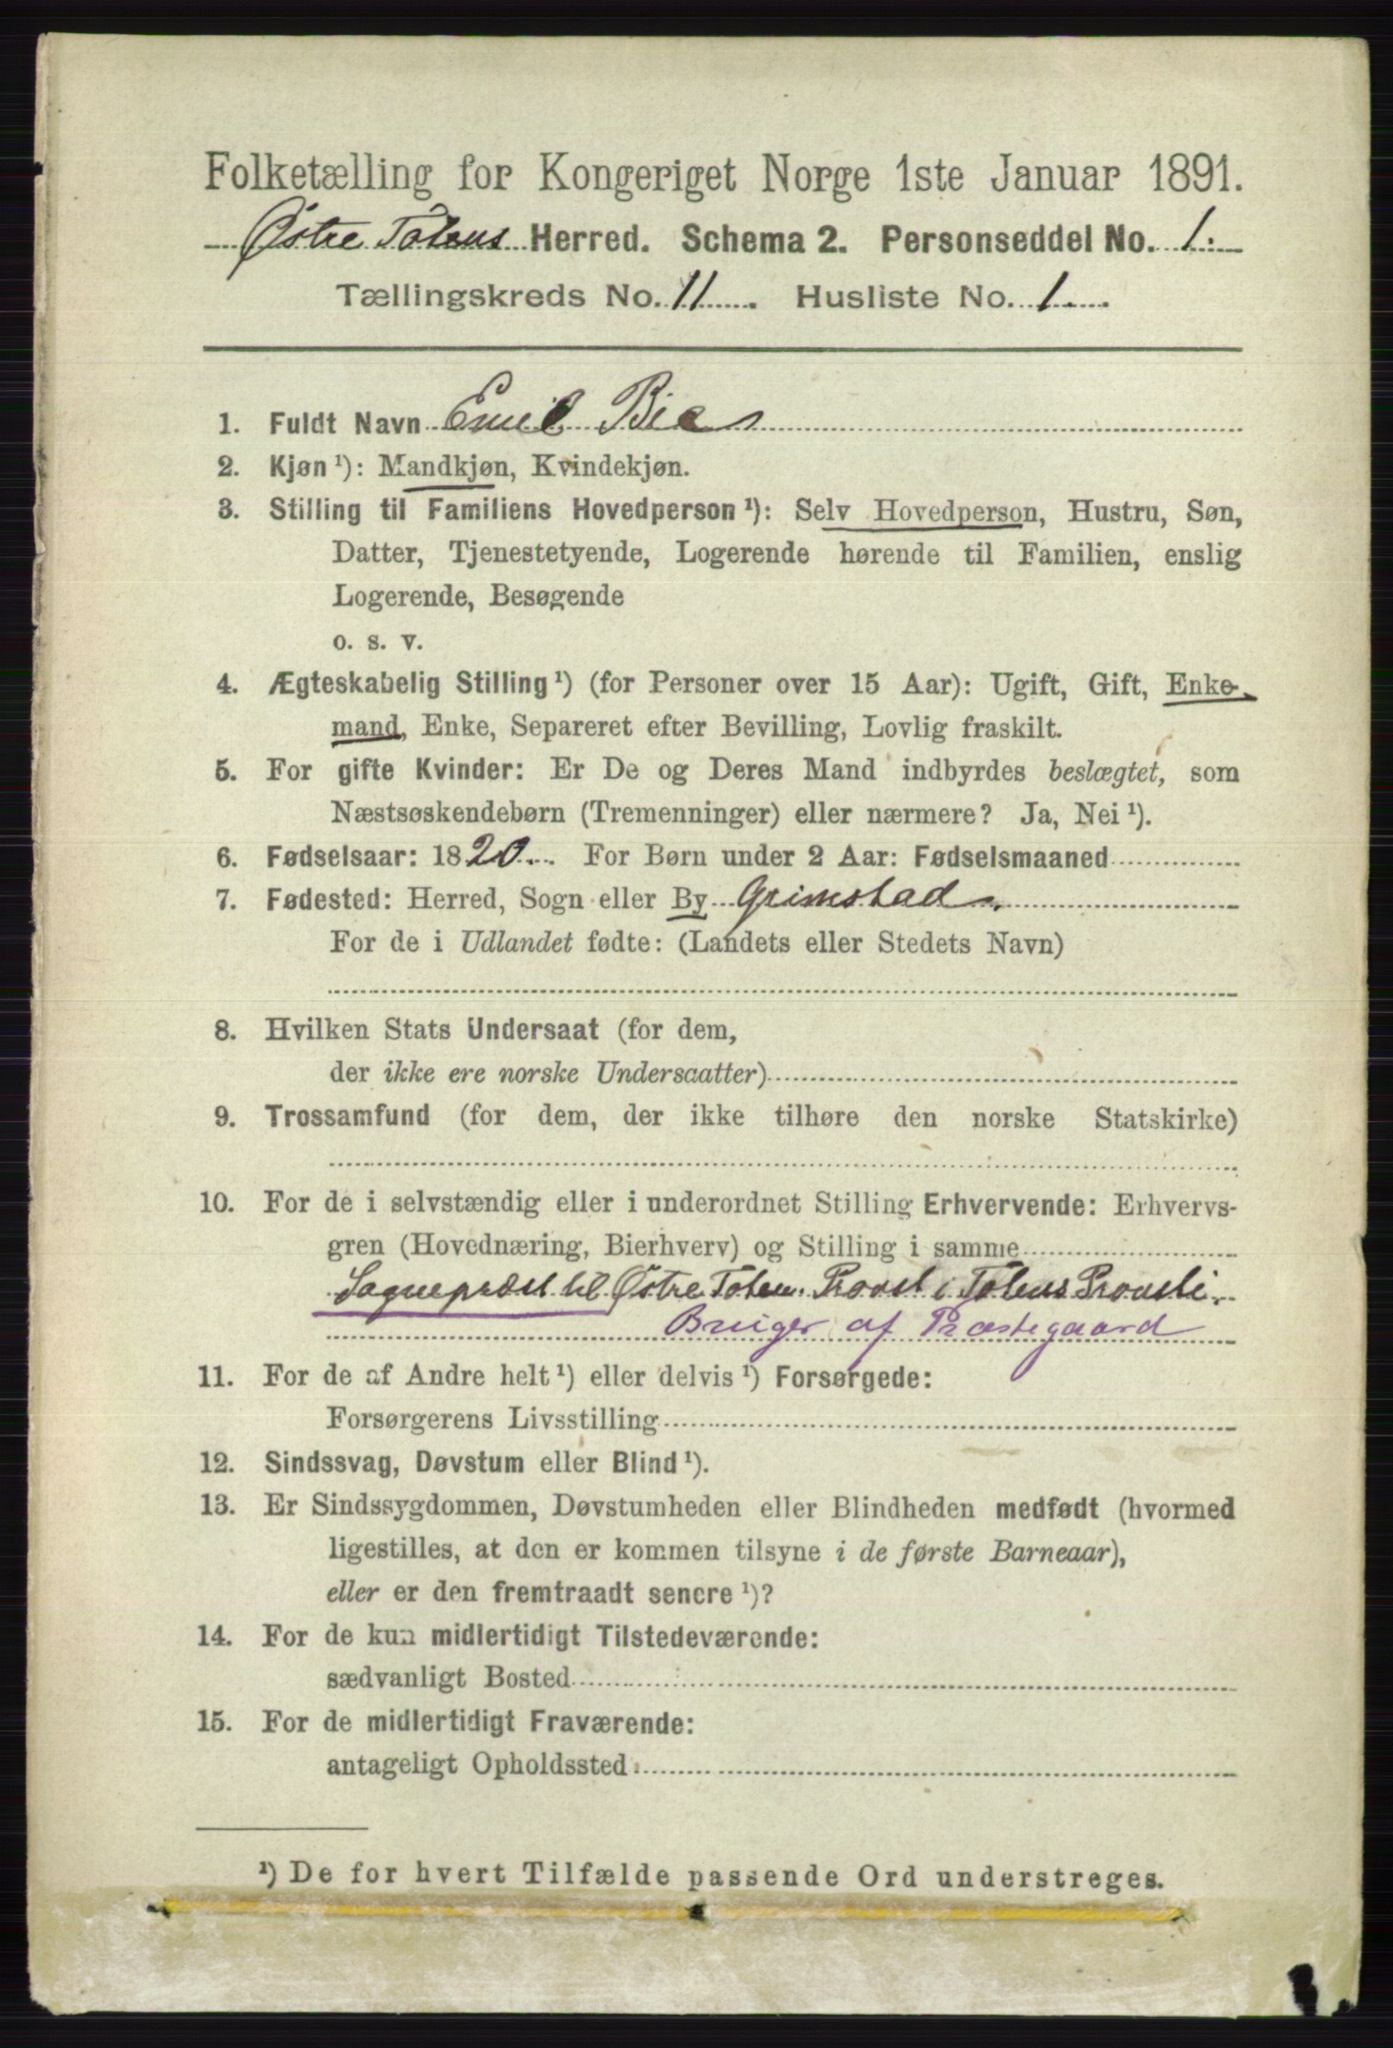 Folketælling for Kongeriget Norge 1ste Januar 1891.
Østre Totens Herred. Schema 2. Personseddel No. 1.
Tællingskreds No. 11. Husliste No. 1.
1. Fuldt Navn Emil Bie
2. Kjøn ¹): Mandkjøn, Kvindekjøn.
3. Stilling til Familiens Hovedperson ¹): Selv Hovedperson, Hustru, Søn,
Datter, Tjenestetyende, Logerende hørende til Familien, enslig
Logerende, Besøgende
o. s. v.
4. Ægteskabelig Stilling ¹) (for Personer over 15 Aar): Ugift, Gift, Enke-
mand, Enke, Separeret efter Bevilling, Lovlig fraskilt.
5. For gifte Kvinder: Er De og Deres Mand indbyrdes beslægtet, som
Næstsøskendebørn (Tremenninger) eller nærmere? Ja, Nei ¹).
6. Fødselsaar: 1820. For Børn under 2 Aar: Fødselsmaaned
7. Fødested: Herred, Sogn eller By Grimstad.
For de i Udlandet fødte: (Landets eller Stedets Navn)
8. Hvilken Stats Undersaat (for dem,
der ikke ere norske Undersaatter)
9. Trossamfund (for dem, der ikke tilhøre den norske Statskirke)
10. For de i selvstændig eller i underordnet Stilling Erhvervende: Erhvervs-
gren (Hovednæring, Bierhverv) og Stilling i samme
Sognepræst til Østre Toten. Provst i Totens Provsti.
Bruger af Præstegaard
11. For de af Andre helt ¹) eller delvis ¹) Forsørgede:
Forsørgerens Livsstilling
12. Sindssvag, Døvstum eller Blind ¹).
13. Er Sindssygdommen, Døvstumheden eller Blindheden medfødt (hvormed
ligestilles, at den er kommen tilsyne i de første Barneaar),
eller er den fremtraadt senere ¹)?
14. For de kun midlertidigt Tilstedeværende:
sædvanligt Bosted
15. For de midlertidigt Fraværende:
antageligt Opholdssted
¹) De for hvert Tilfælde passende Ord understreges.